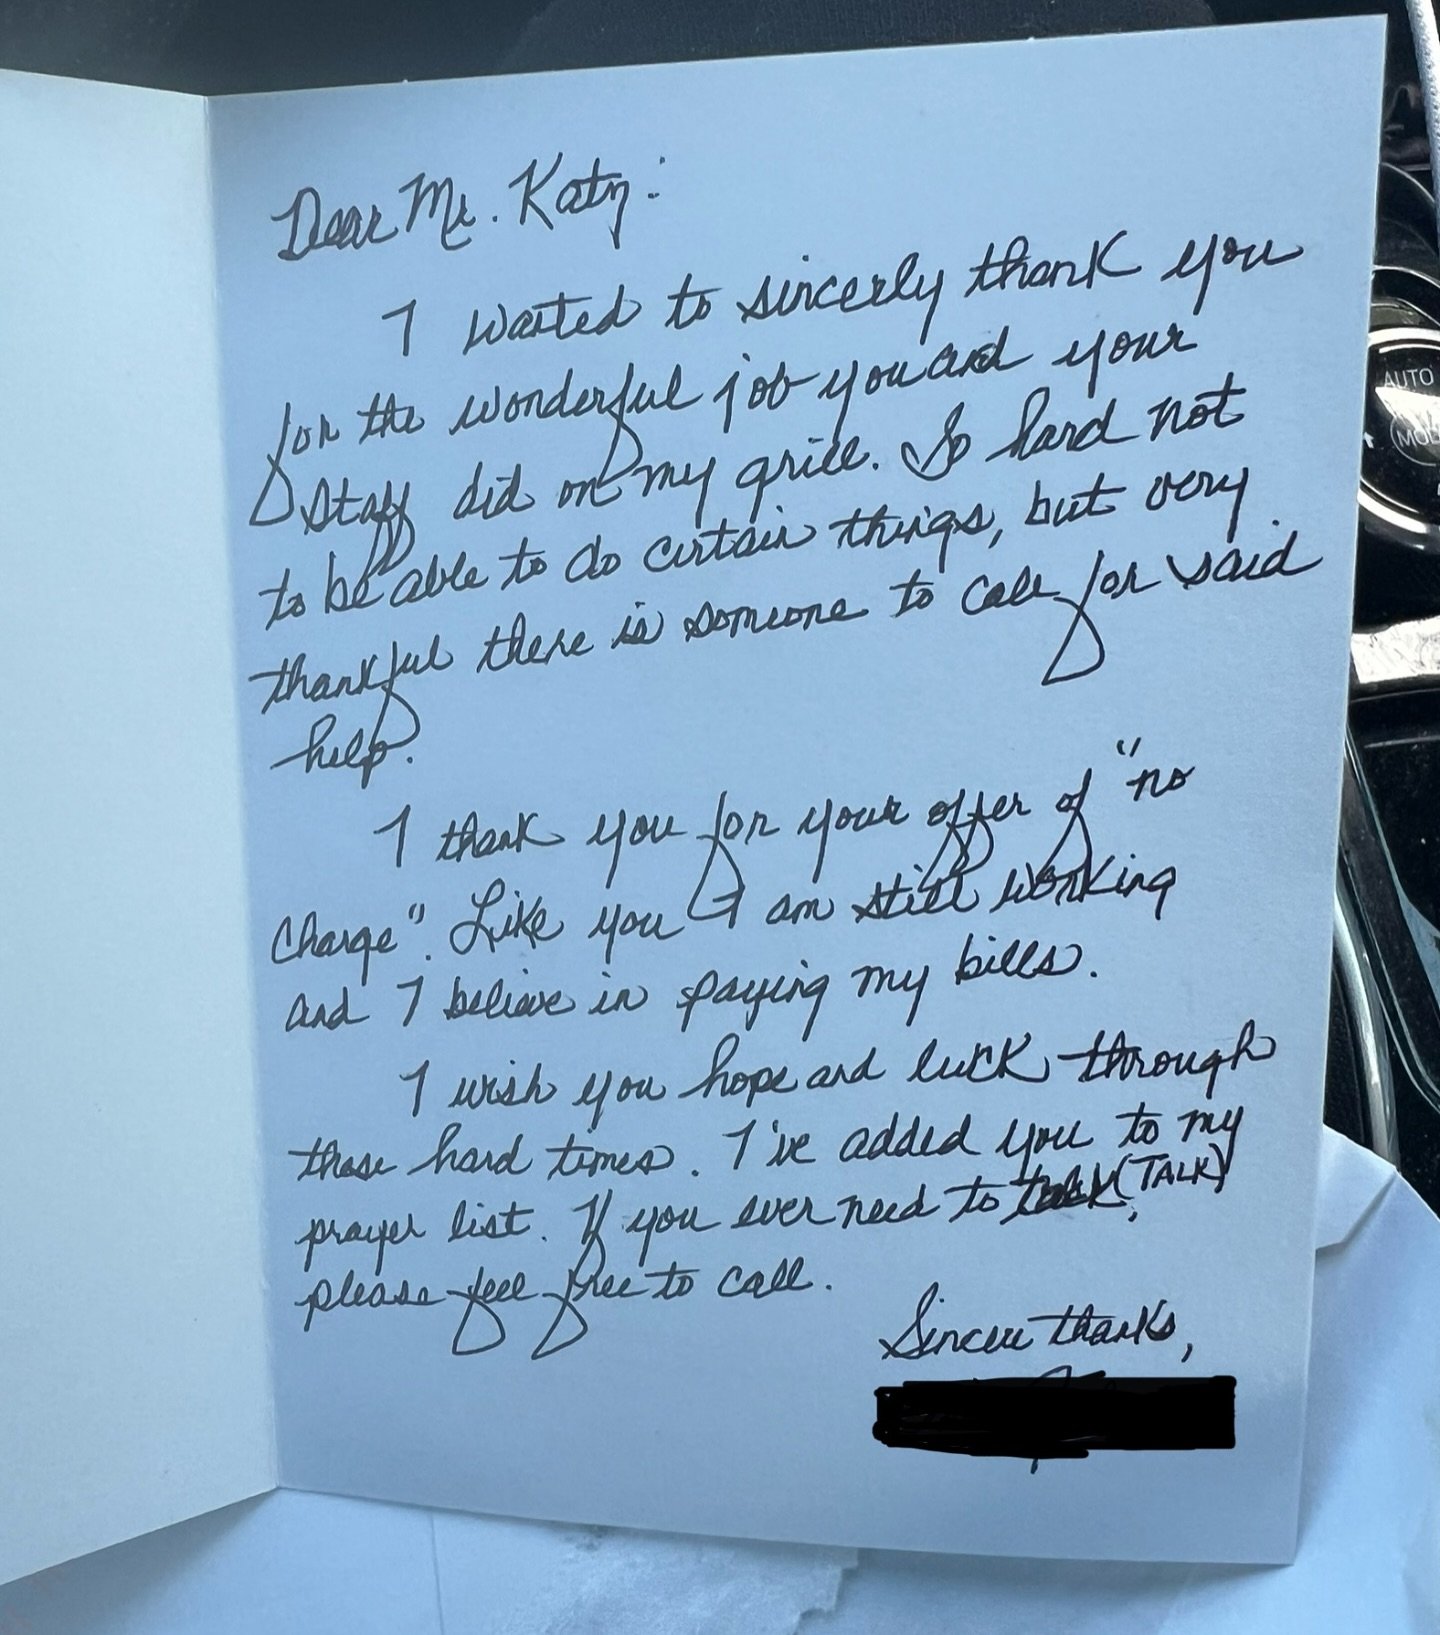 Dear Mr. Katz:
I wanted to sincerly thank you
for the wonderful job you and your
staff did on my grill. So hard not
to be able to do certain things, but very
thankful there is someone to call for said
help.
I thank you for your offer of "no
charge". Like you I am still working
and I believe in paying my bills.
I wish you hope and luck through
these hard times. I've added you to my
prayer list. If you ever need to talk (TALK),
please feel free to call.
Sincere thanks,
AUTO